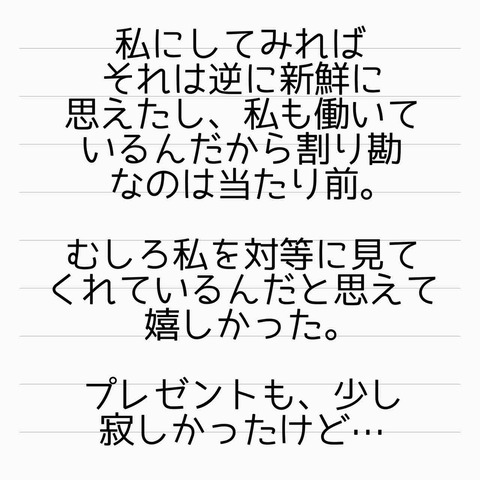 私にしてみれば
それは逆に新鮮に
思えたし、私も働いて
いるんだから割り勘
なのは当たり前。
むしろ私を対等に見て
くれているんだと思えて
嬉しかった。
プレゼントも、少し
寂しかったけど…